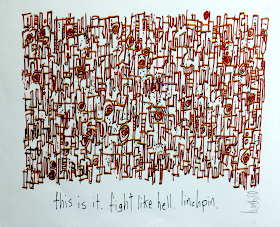 this is it. fight like hell. linchpin.